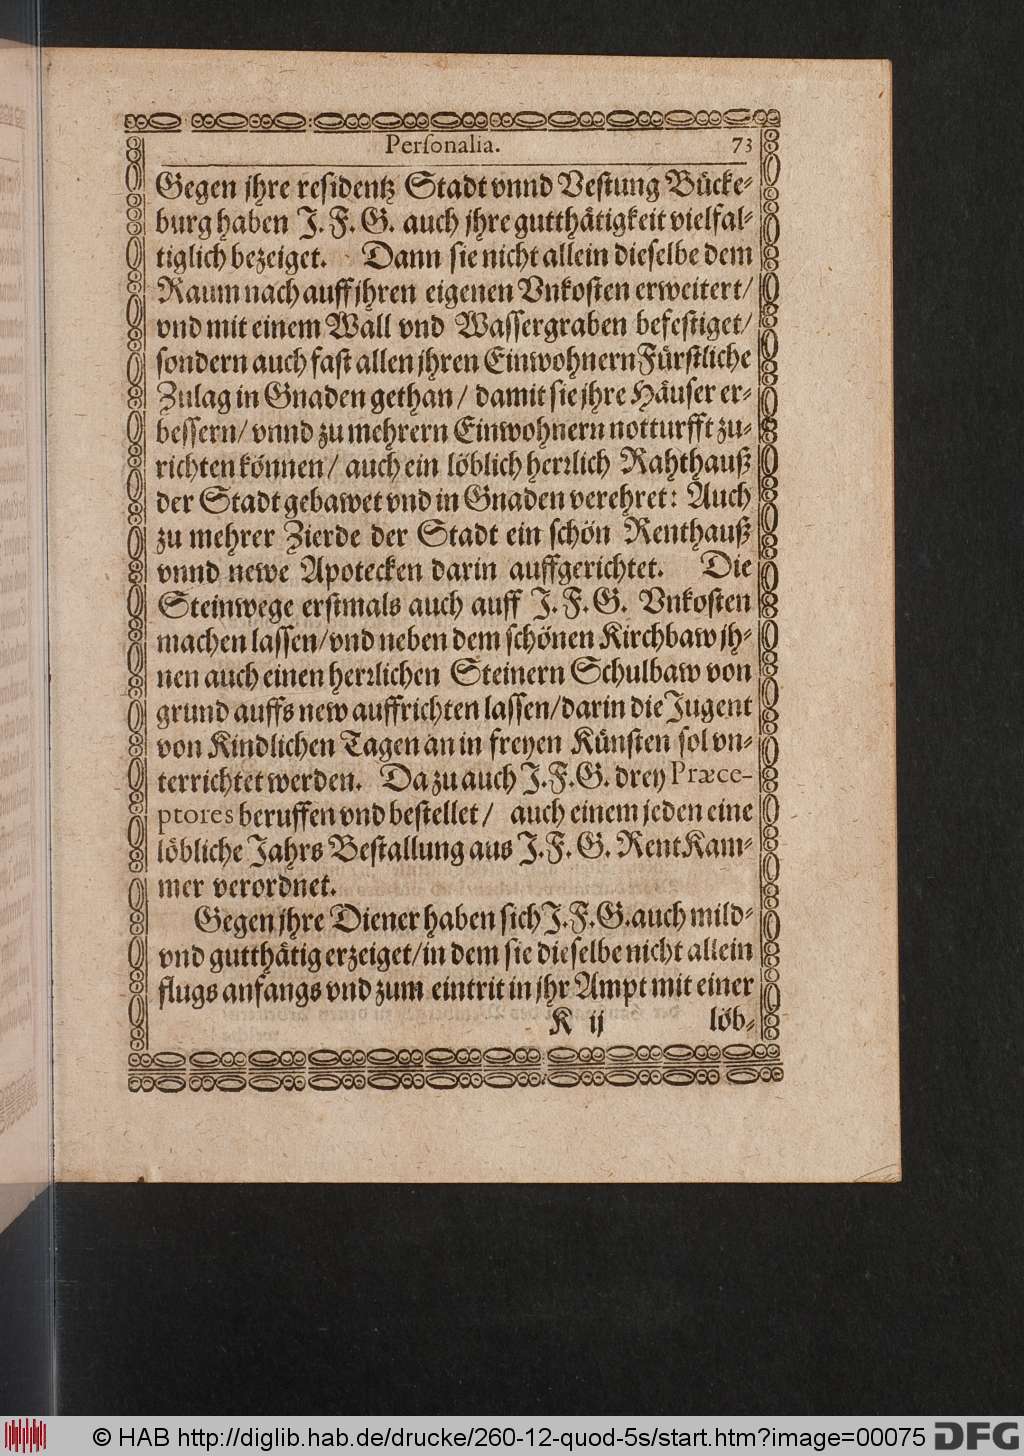 Personalia. 73
Gegen jhre residentz Stadt vnnd Vestung Bücke-
burg haben J. F. G. auch jhre gutthätigkeit vielfal-
tiglich bezeiget. Dann sie nicht allein dieselbe dem
Raum nach auff jhren eigenen Vnkosten erweitert/
vnd mit einem Wall vnd Wassergraben befestiget/
sondern auch fast allen jhren Einwohnern Fürstliche
Zulag in Gnaden gethan/ damit sie jhre Häuser er-
bessern/ vnnd zu mehrern Einwohnern notturfft zu-
richten können/ auch ein löblich herrlich Rahthauß
der Stadt gebawet vnd in Gnaden verehret: Auch
zu mehrer Zierde der Stadt ein schön Renthauß
vnnd newe Apotecken darin auffgerichtet. Die
Steinwege erstmals auch auff J. F. G. Vnkosten
machen lassen/ vnd neben dem schönen Kirchbaw jh-
nen auch einen herrlichen Steinern Schulbaw von
grund auffs new auffrichten lassen/ darin die Jugent
von Kindlichen Tagen an in freyen Künsten sol vn-
terrichtet werden. Da zu auch J. F. G. drey Præce-
ptores beruffen vnd bestellet/ auch einem jeden eine
löbliche Jahrs Bestallung aus J. F. G. RentKam-
mer verordnet.
Gegen jhre Diener haben sich J. F. G. auch mild-
vnd gutthätig erzeiget/ in dem sie dieselbe nicht allein
flugs anfangs vnd zum eintrit in jhr Ampt mit einer
K ij löb-
© HAB http://diglib.hab.de/drucke/260-12-quod-5s/start.htm?image=00075 DFG